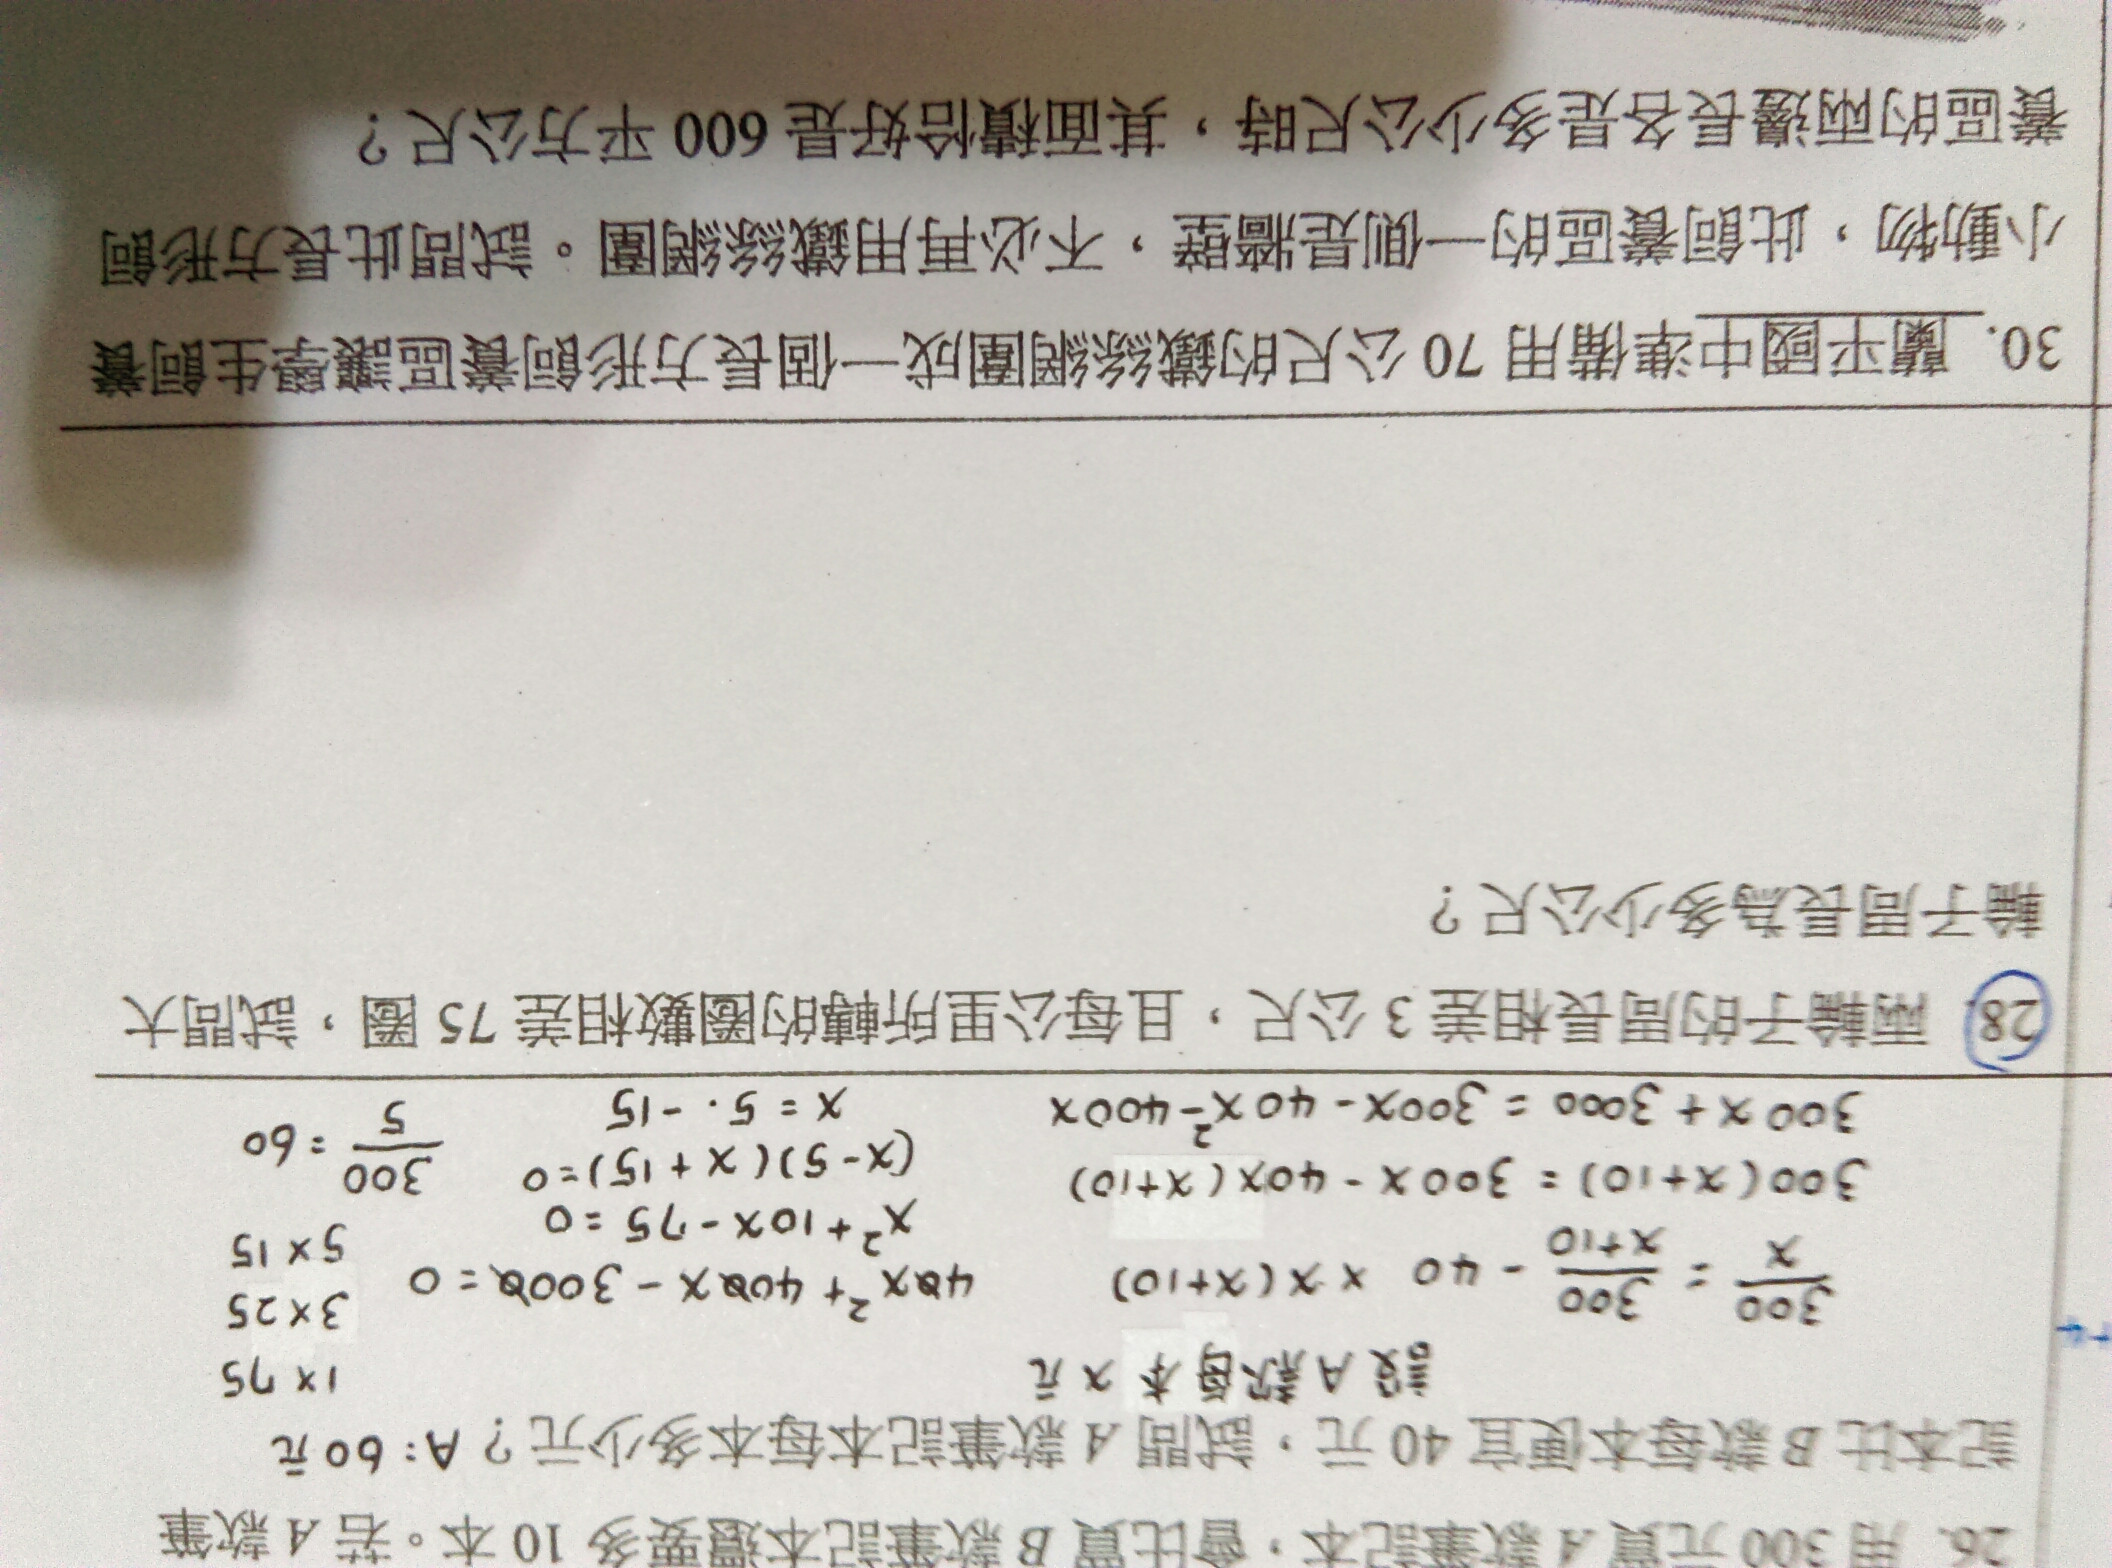 26. 用 300 元買 A 款筆記本，會比買 B 款筆記本還要多 10 本。若 A 款筆
記本比 B 款每本便宜 40 元，試問 A 款筆記本每本多少元？A: 60元
設A款每本x元
300/x = 300/(x+10) - 40 ×x(x+10)
300(x+10) = 300x - 40x(x+10)
300x + 3000 = 300x - 40x² - 400x
40x² + 400x - 3000 = 0
x² + 10x - 75 = 0
(x-5)(x+15) = 0
x = 5. -15
1×75
3×25
5×15
300/5 = 60
28. 兩輪子的周長相差 3 公尺，且每公里所轉的圈數相差 75 圈，試問大
輪子周長為多少公尺？
30. 蘭平國中準備用 70 公尺的鐵絲網圍成一個長方形飼養區讓學生飼養
小動物，此飼養區的一側是牆壁，不必再用鐵絲網圍。試問此長方形飼
養區的兩邊長各是多少公尺時，其面積恰好是 600 平方公尺？